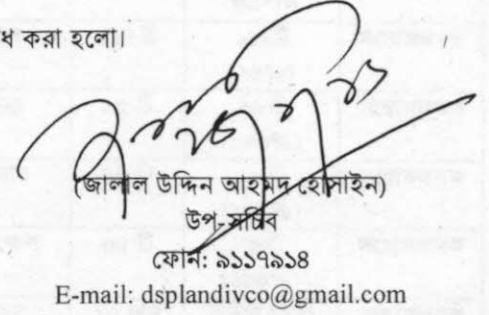 ধ করা হলো।
(জালাল উদ্দিন আহমদ হোসাইন)
উপ-সচিব
ফোন: ৯১১৭৯১৪
E-mail: dsplandivco@gmail.com